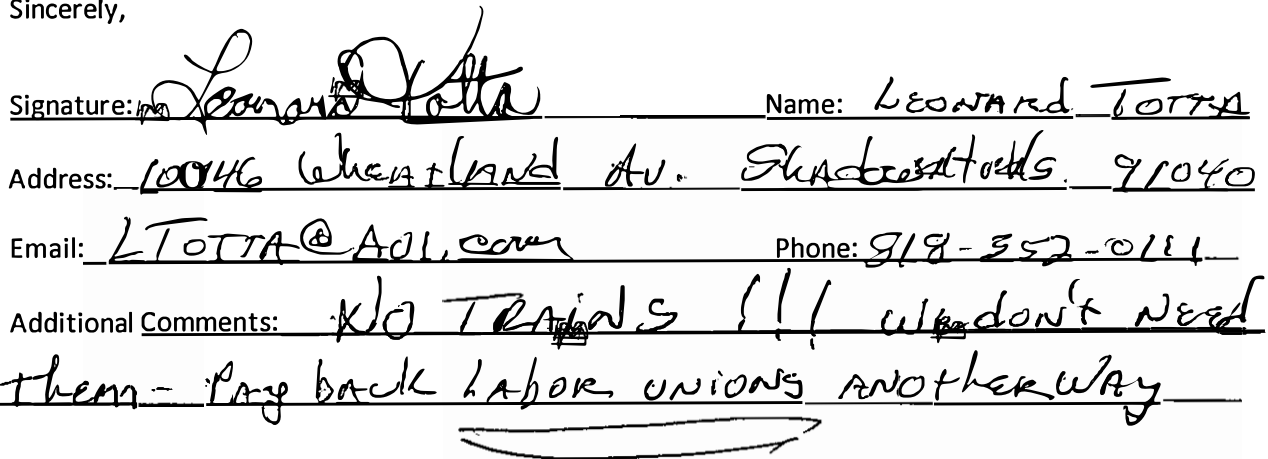 Sincerely,
Signature: Leonard Totta Name: LEONARD TOTTA
Address: 10046 Wheatland Av. 91040
Email: LTOTTA@AOl.com Phone: 818-352-0111
Additional Comments: NO TRAINS !!! We don't NEED
them - Pay back LABOR UNIONS ANOTHER WAY